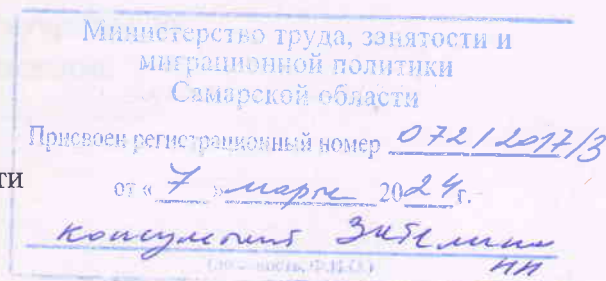 Министерство труда, занятости и
миграционной политики
Самарской области
Присвоен регистрационный номер 072/2017/3
ти
от « 7 » марта 2024 г.
консультант
НН